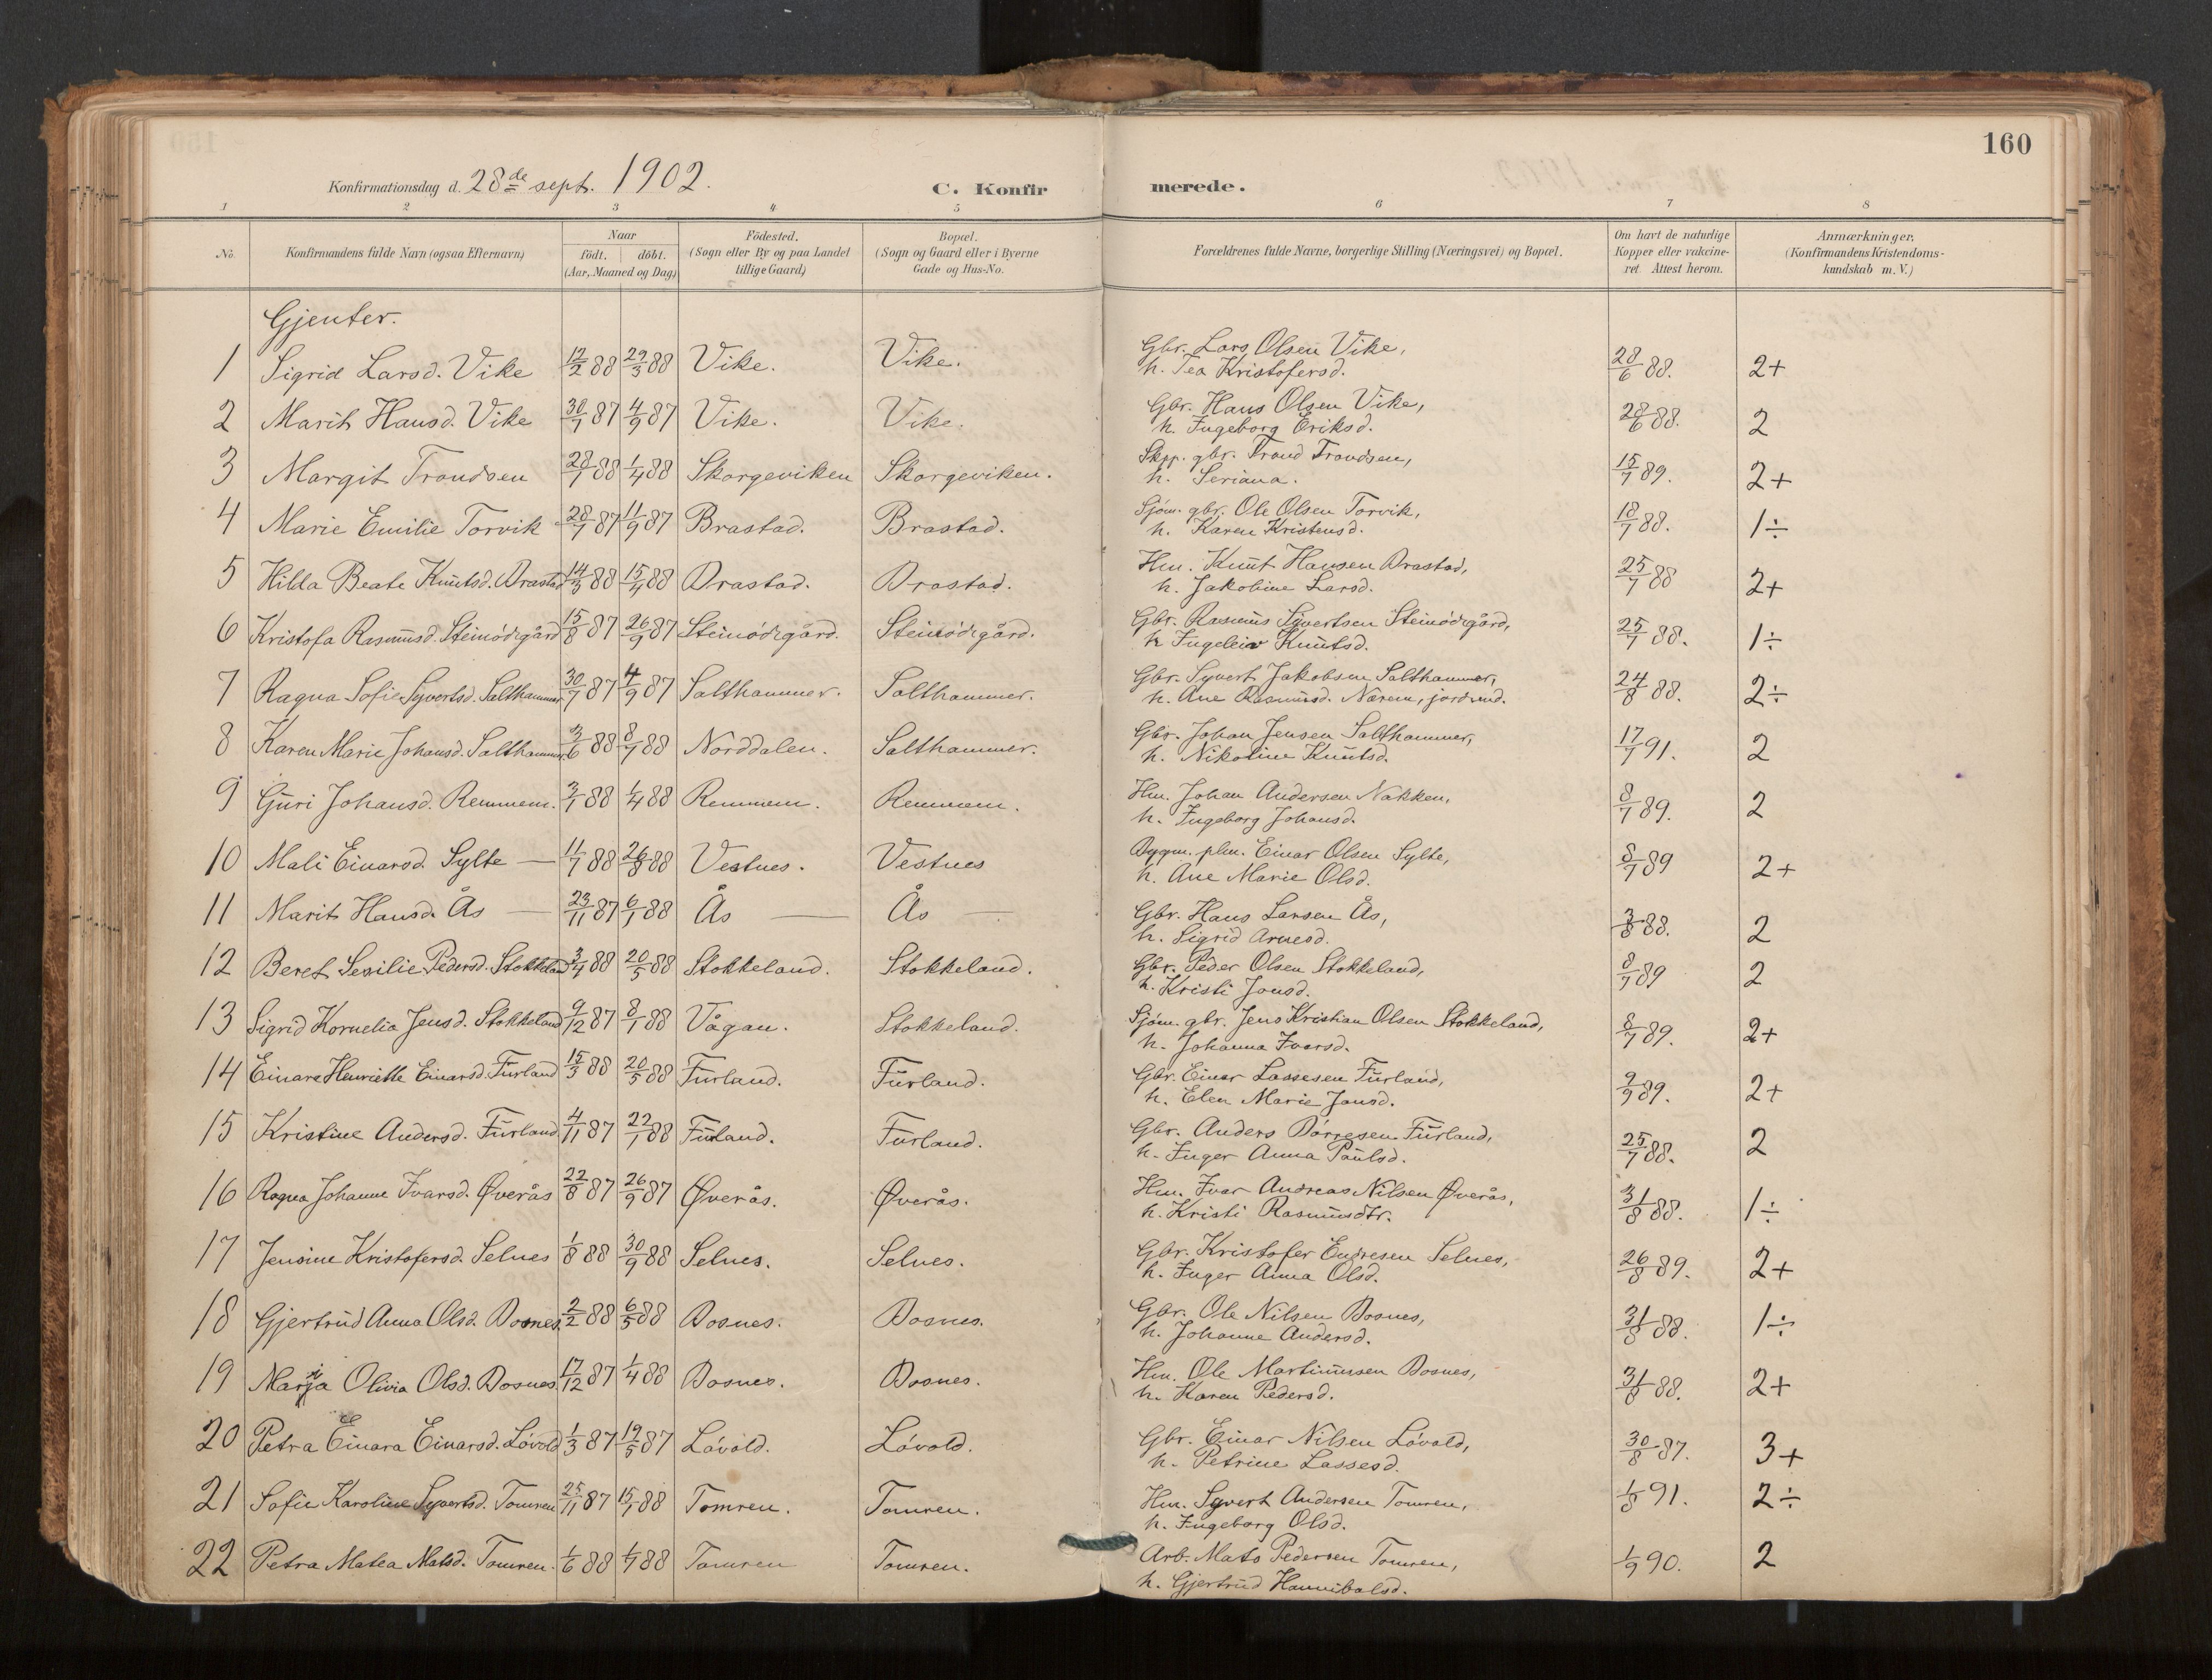 160
Konfirmationsdag d. 28de sept. 1902.
C. Konfirmerede.
1 2 3 4 5 6 7 8
No.
Konfirmandens fulde Navn (ogsaa Efternavn)
Naar
födt. döbt.
(Aar, Maaned og Dag)
Födested.
(Sogn eller By og paa Landet
tillige Gaard)
Bopæl.
(Sogn og Gaard eller i Byerne
Gade og Hus-No.
Forældrenes fulde Navne, borgerlige Stilling (Næringsvei) og Bopæl.
Om havt de naturlige
Kopper eller vakcine-
ret Attest herom.
Anmærkninger,
(Konfirmandens Kristendoms-
kundskab m. V.)
Gjenter.
1 Sigrid Larsd. Vike 12/2 88 29/3 88 Vike. Vike. Gbr. Lars Olsen Vike,
h. Tea Kristofersd. 28/6 88. 2+
2 Marit Hansd. Vike 30/7 87 4/9 87 Vike. Vike. Gbr. Hans Olsen Vike,
h. Ingeborg Eriksd. 28/6 88. 2
3 Margit Trondsen 28/1 88 1/4 88 Skorgeviken Skorgeviken. Skpp. gbr. Trond Trondsen,
h. Seriana. 15/7 89. 2+
4 Marie Emilie Torvik 28/7 87 11/9 87 Brastad. Brastad. Sjøm. gbr. Ole Olsen Torvik,
h. Karen Kristensd. 18/7 88. 1÷
5 Hilda Beate Knutsd. Brastad 14/3 88 15/4 88 Brastad. Brastad. Hm. Knut Hansen Brastad,
h. Jakobine Larsd. 25/7 88 2+
6 Kristofa Rasmusd. Steinödegård 15/8 87 26/9 87 Steinödegård. Steinödegård. Gbr. Rasmus Syvertsen Steinödegård,
h Ingeleiv Knutsd. 25/7 88. 1÷
7 Ragna Sofie Syvertsd. Salthammer 30/7 87 4/9 87 Salthammer. Salthammer. Gbr. Syvert Jakobsen Salthammer,
h. Ane Rasmusd. Nærem, jordmd. 24/8 88. 2÷
8 Karen Marie Johansd. Salthammer 3/6 88 8/7 88 Norddalen. Salthammer. Gbr. Johan Jensen Salthammer,
h. Nikoline Knutsd. 17/7 91. 2
9 Guri Johansd. Remmem. 3/1 88 1/4 88 Remmem. Remmem. Hm. Johan Andersen Nakken,
h. Ingeborg Johansd. 8/7 89. 2
10 Mali Einarsd. Sylte — 11/7 88 26/8 88 Vestnes. Vestnes Bygm. plm. Einar Olsen Sylte,
h. Ane Marie Olsd. 8/7 89 2+
11 Marit Hansd. Ås — 23/11 87 6/1 88 Ås — Ås — Gbr. Hans Larsen Ås,
h. Sigrid Arnesd. 3/8 88. 2
12 Beret Sesilie Pedersd. Stokkeland 3/4 88 20/5 88 Stokkeland. Stokkeland. Gbr. Peder Olsen Stokkeland,
h. Kristi Jonsd. 8/7 89 2
13 Sigrid Kornelia Jensd. Stokkeland 9/12 87 8/1 88 Vågan. Stokkeland. Sjøm. gbr. Jens Kristian Olsen Stokkeland,
h. Johanna Ivarsd. 8/7 89. 2+
14 Einara Henriette Einarsd. Furland 15/3 88 20/5 88 Furland. Furland. Gbr. Einar Lassesen Furland,
h. Elen Marie Jonsd. 9/9 89. 2+
15 Kristine Andersd. Furland 4/11 87 22/1 88 Furland. Furland. Gbr. Anders Börresen Furland,
h. Inger Anna Paulsd. 25/7 88. 2
16 Ragna Johanne Ivarsd. Øverås 22/8 87 26/9 87 Øverås. Øverås. Hm. Ivar Andreas Nilsen Øverås,
h. Kristi Rasmusdtr. 31/8 88. 1÷
17 Jensine Kristofersd. Selnes 1/8 88 30/9 88 Selnes. Selnes. Gbr. Kristofer Endresen Selnes,
h. Inger Anna Olsd. 26/8 89. 2+
18 Gjertrud Anna Olsd. Bosnes. 2/2 88 6/5 88 Bosnes. Bosnes. Gbr. Ole Nilsen Bosnes,
h. Johanne Andersd. 31/8 88. 1÷
19 Marja Olivia Olsd. Bosnes 17/12 87 1/4 88 Bosnes. Bosnes. Hm. Ole Martinussen Bosnes,
h. Karen Pedersd. 31/8 88. 2+
20 Petra Einara Einarsd. Lövold 1/3 87 19/5 87 Lövold. Lövold. Gbr. Einar Nilsen Lövold,
h. Petrine Lassesd. 30/8 87. 3+
21 Sofie Karoline Syvertsd. Tomren 25/11 87 15/1 88 Tomren. Tomren. Hm. Syvert Andersen Tomren,
h. Ingeborg Olsd. 1/8 91. 2÷
22 Petra Matea Matsd. Tomren. 1/6 88 1/7 88 Tomren Tomren. Arb. Mats Pedersen Tomren,
h. Gjertrud Hannibalsd. 1/9 90. 2